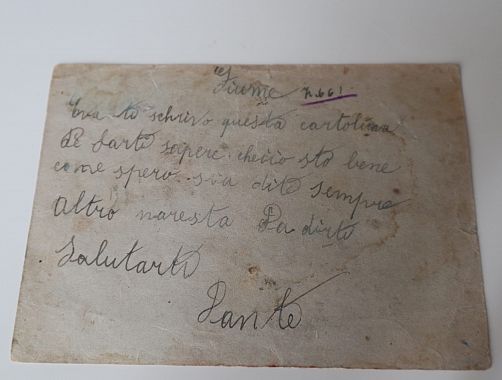 Fiume n. 661
Eva ti schrivo questa cartolina
Pe farti sapere. cheiio sto bene
come spero. sia dite sempre
altro naresta Da dirti
Salutarti
Dante